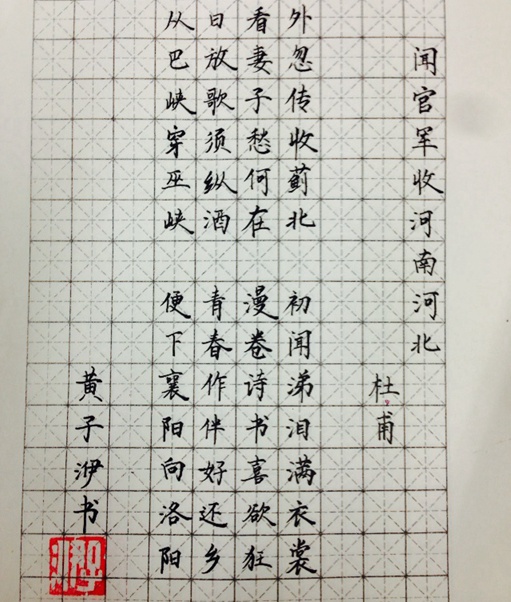 闻官军收河南河北
杜甫
外忽传收蓟北 初闻涕泪满衣裳
看妻子愁何在 漫卷诗书喜欲狂
日放歌须纵酒 青春作伴好还乡
从巴峡穿巫峡 便下襄阳向洛阳
黄子洢书